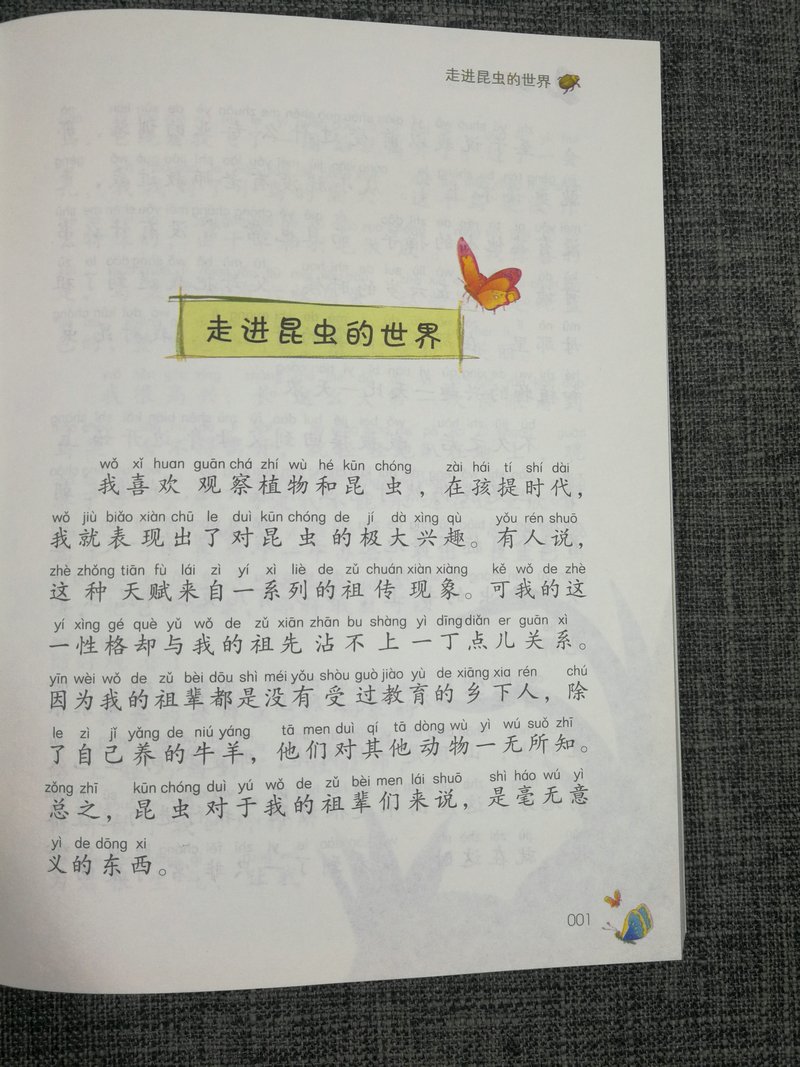 走进昆虫的世界
走进昆虫的世界
wǒ xǐ huan guān chá zhí wù hé kūn chóng zài hái tí shí dài
我喜欢观察植物和昆虫，在孩提时代，
wǒ jiù biǎo xiàn chū le duì kūn chóng de jí dà xìng qù yǒu rén shuō
我就表现出了对昆虫的极大兴趣。有人说，
zhè zhǒng tiān fù lái zì yí xì liè de zǔ chuán xiàn xiàng kě wǒ de zhè
这种天赋来自一系列的祖传现象。可我的这
yí xìng gé què yǔ wǒ de zǔ xiān zhān bu shàng yì dīng diǎn er guān xì
一性格却与我的祖先沾不上一丁点儿关系。
yīn wèi wǒ de zǔ bèi dōu shì méi yǒu shòu guò jiào yù de xiāng xia rén chú
因为我的祖辈都是没有受过教育的乡下人，除
le zì jǐ yǎng de niú yáng tā men duì qí tā dòng wù yì wú suǒ zhī
了自己养的牛羊，他们对其他动物一无所知。
zǒng zhī kūn chóng duì yú wǒ de zǔ bèi men lái shuō shì háo wú yì
总之，昆虫对于我的祖辈们来说，是毫无意
yì de dōng xi
义的东西。
001